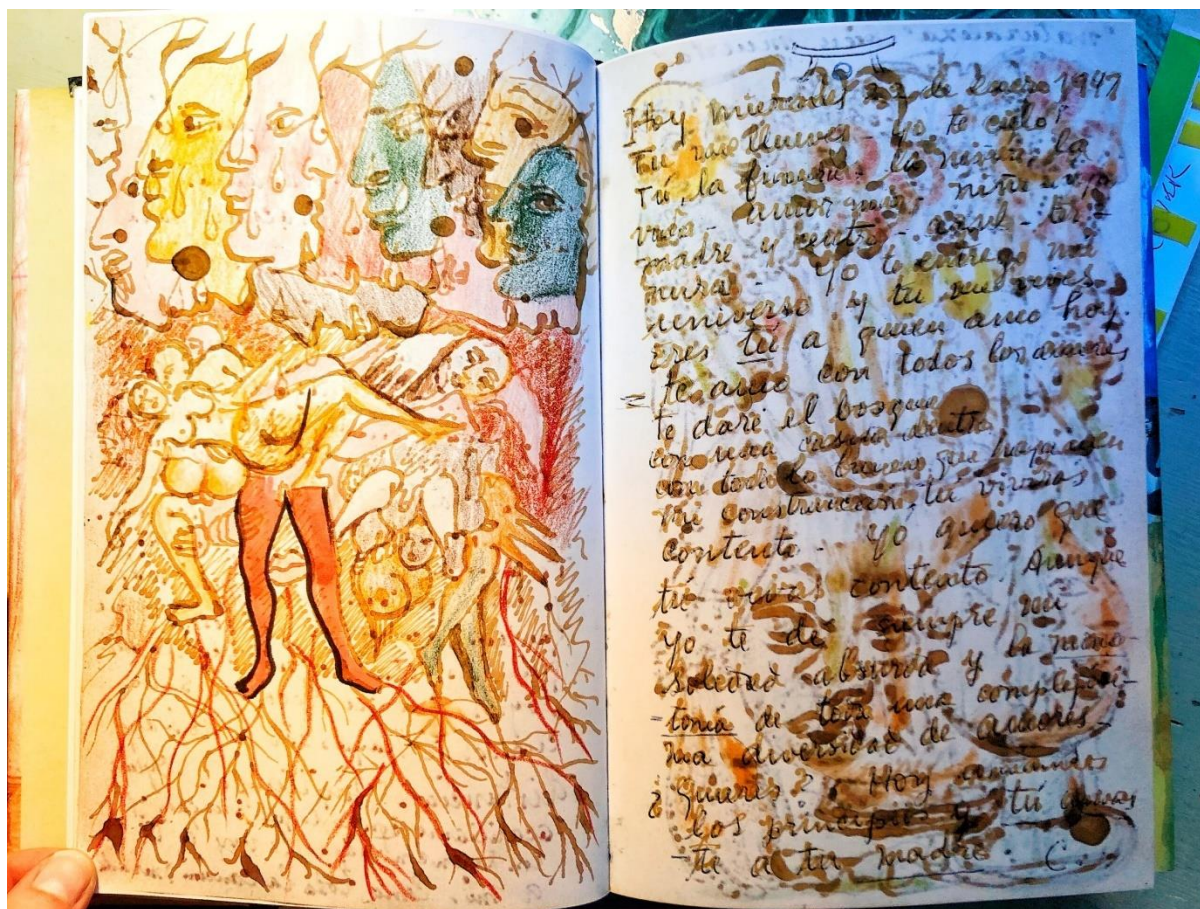 Hoy miercoles 22 de Enero 1947
Tú me llueves - yo te cielo
Tú la finura, la niñez, la
vida - amor mío - niño - viejo
madre y centro - azul - ter-
nura - Yo te entrego mi
universo y tú me vives
Eres tú a quien amo hoy.
te amo con todos los amores
te daré el bosque
con una casita dentro
con todo lo bueno que haya en
mi construcción, tú vivirás
contento - yo quiero que
tú vivas contento. Aunque
yo te dé siempre mi
soledad absurda y la mono-
-tonía de toda una complejísi-
ma diversidad de amores -
¿Quieres? Hoy
los principios y tú
-te a tu madre